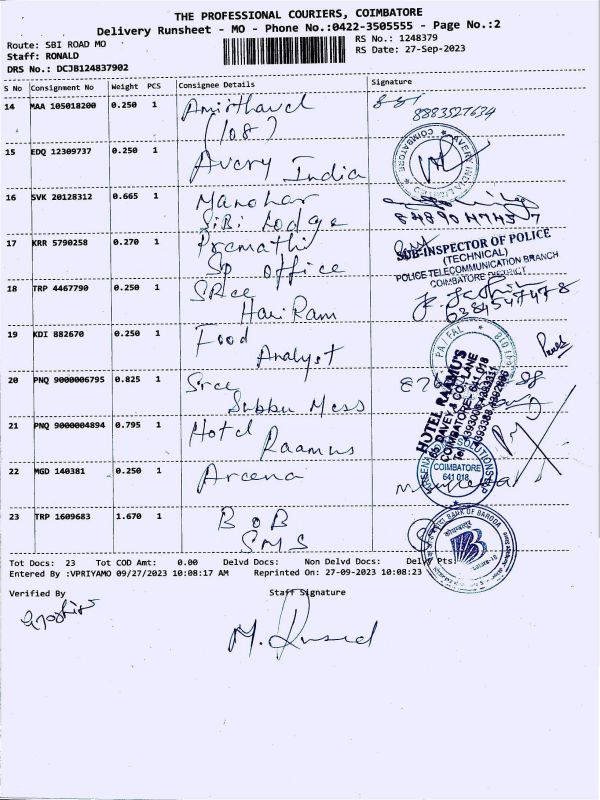 THE PROFESSIONAL COURIERS, COIMBATORE
Delivery Runsheet - MO - Phone No.:0422-3505555 - Page No.:2
Route: SBI ROAD MO
RS No.: 1248379
Staff: RONALD
RS Date: 27-Sep-2023
DRS No.: DCJB124837902
S No Consignment No Weight PCS Consignee Details Signature
14 MAA 105018200 0.250 1 Amirthavel
(108)
8883527634
15 EDQ 12309737 0.250 1 Avery India
AVERY INDIA LIMITED
COIMBATORE
16 SVK 20128312 0.665 1 Manohar
SiBi Lodge
8489047457
17 KRR 5790258 0.270 1 Premathi
Sp office
SUB-INSPECTOR OF POLICE
(TECHNICAL)
POLICE TELECOMMUNICATION BRANCH
COIMBATORE DISTRICT
18 TRP 4467790 0.250 1 Sree
Hari Ram
19 KDI 882670 0.250 1 Food
Analyst
20 PNQ 9000006795 0.825 1 Sree
Subbu Mess
21 PNQ 9000004894 0.795 1 Hotel
Raamus
HOTEL RAAMUS
COIMBATORE - 641 018
22 MGD 140381 0.250 1 Arcena
COIMBATORE
641 018
23 TRP 1609683 1.670 1 BoB
SMS
BANK OF BARODA
Tot Docs: 23 Tot COD Amt: 0.00 Delvd Docs: Non Delvd Docs: Delvy Pts:
Entered By :VPRIYAMO 09/27/2023 10:08:17 AM Reprinted On: 27-09-2023 10:08:23
Verified By Staff Signature